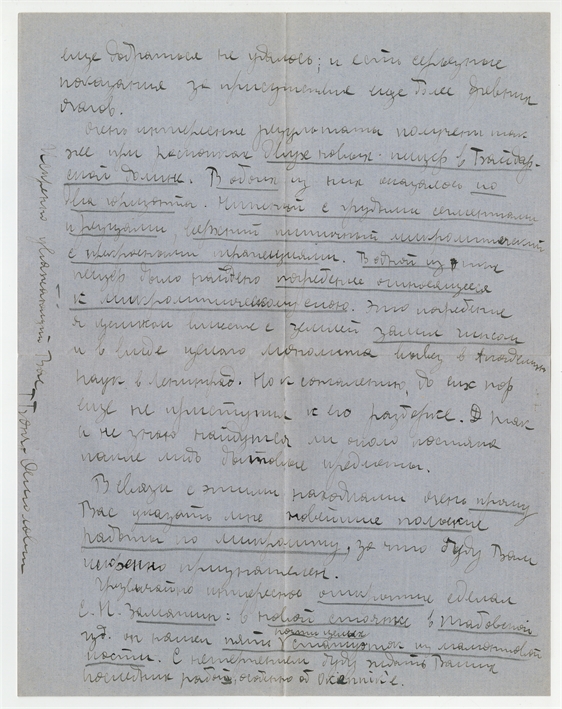 еще добраться не удалось; и есть серьезные
показания за присутствие еще более древних
очагов.
Очень интересные результаты получены так
же при раскопках двух новых пещер в Байдар-
ской долине. В обоих из них оказалось по
два горизонта. Нижний с грубыми сегментами
и резцами, верхний типичный микролитический
с прекрасными трапециями. В одной из них
пещер было найдено погребение относящееся
к микролитическому слою. Это погребение
я целиком вместе с землей залил гипсом
и в виде целого монолита вывез в Академию
наук в Ленинград. Но к сожалению, до сих пор
еще не приступил к его разборке. Так
я не знаю найдутся ли около костяка
какие либо бытовые предметы.
В связи с этими находками очень прошу
Вас указать мне новейшие польские
работы по микролиту, за что буду Вам
искренно признателен.
Чрезвычайно интересное открытие сделал
С. Н. Замятнин: в новой стоянке в
он нашел пять почти целых статуэток из мамонтовой
кости. С нетерпением буду ждать Ваших
последних работ, особенно об
Искренно уважающий Вас